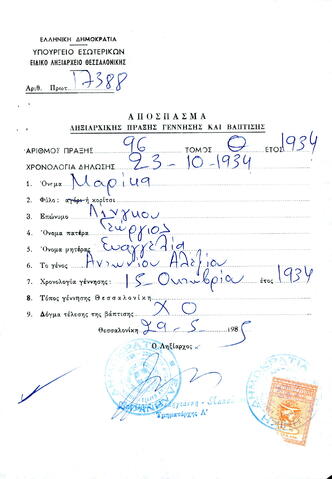 ΕΛΛΗΝΙΚΗ ΔΗΜΟΚΡΑΤΙΑ
ΥΠΟΥΡΓΕΙΟ ΕΣΩΤΕΡΙΚΩΝ
ΕΙΔΙΚΟ ΛΗΞΙΑΡΧΕΙΟ ΘΕΣΣΑΛΟΝΙΚΗΣ
Αριθ. Πρωτ. 17388
ΑΠΟΣΠΑΣΜΑ
ΛΗΞΙΑΡΧΙΚΗΣ ΠΡΑΞΗΣ ΓΕΝΝΗΣΗΣ ΚΑΙ ΒΑΠΤΙΣΗΣ
ΑΡΙΘΜΟΣ ΠΡΑΞΗΣ 96 ΤΟΜΟΣ Θ ΕΤΟΣ 1934
ΧΡΟΝΟΛΟΓΙΑ ΔΗΛΩΣΗΣ 23-10-1934
1. Όνομα Μαρίκα
2. Φύλο: αγόρι ή κορίτσι
3. Επώνυμο
4. Όνομα πατέρα Γεώργιος
5. Όνομα μητέρας Ευαγγελία
6. Το γένος Αντωνίου Αλεξίου
7. Χρονολογία γέννησης: 15 Οκτωβρίου έτος 1934
8. Τόπος γέννησης Θεσσαλονίκη
9. Δόγμα τέλεσης της βάπτισης Χ Ο
Θεσσαλονίκη 29-5-1985
Ο Ληξίαρχος